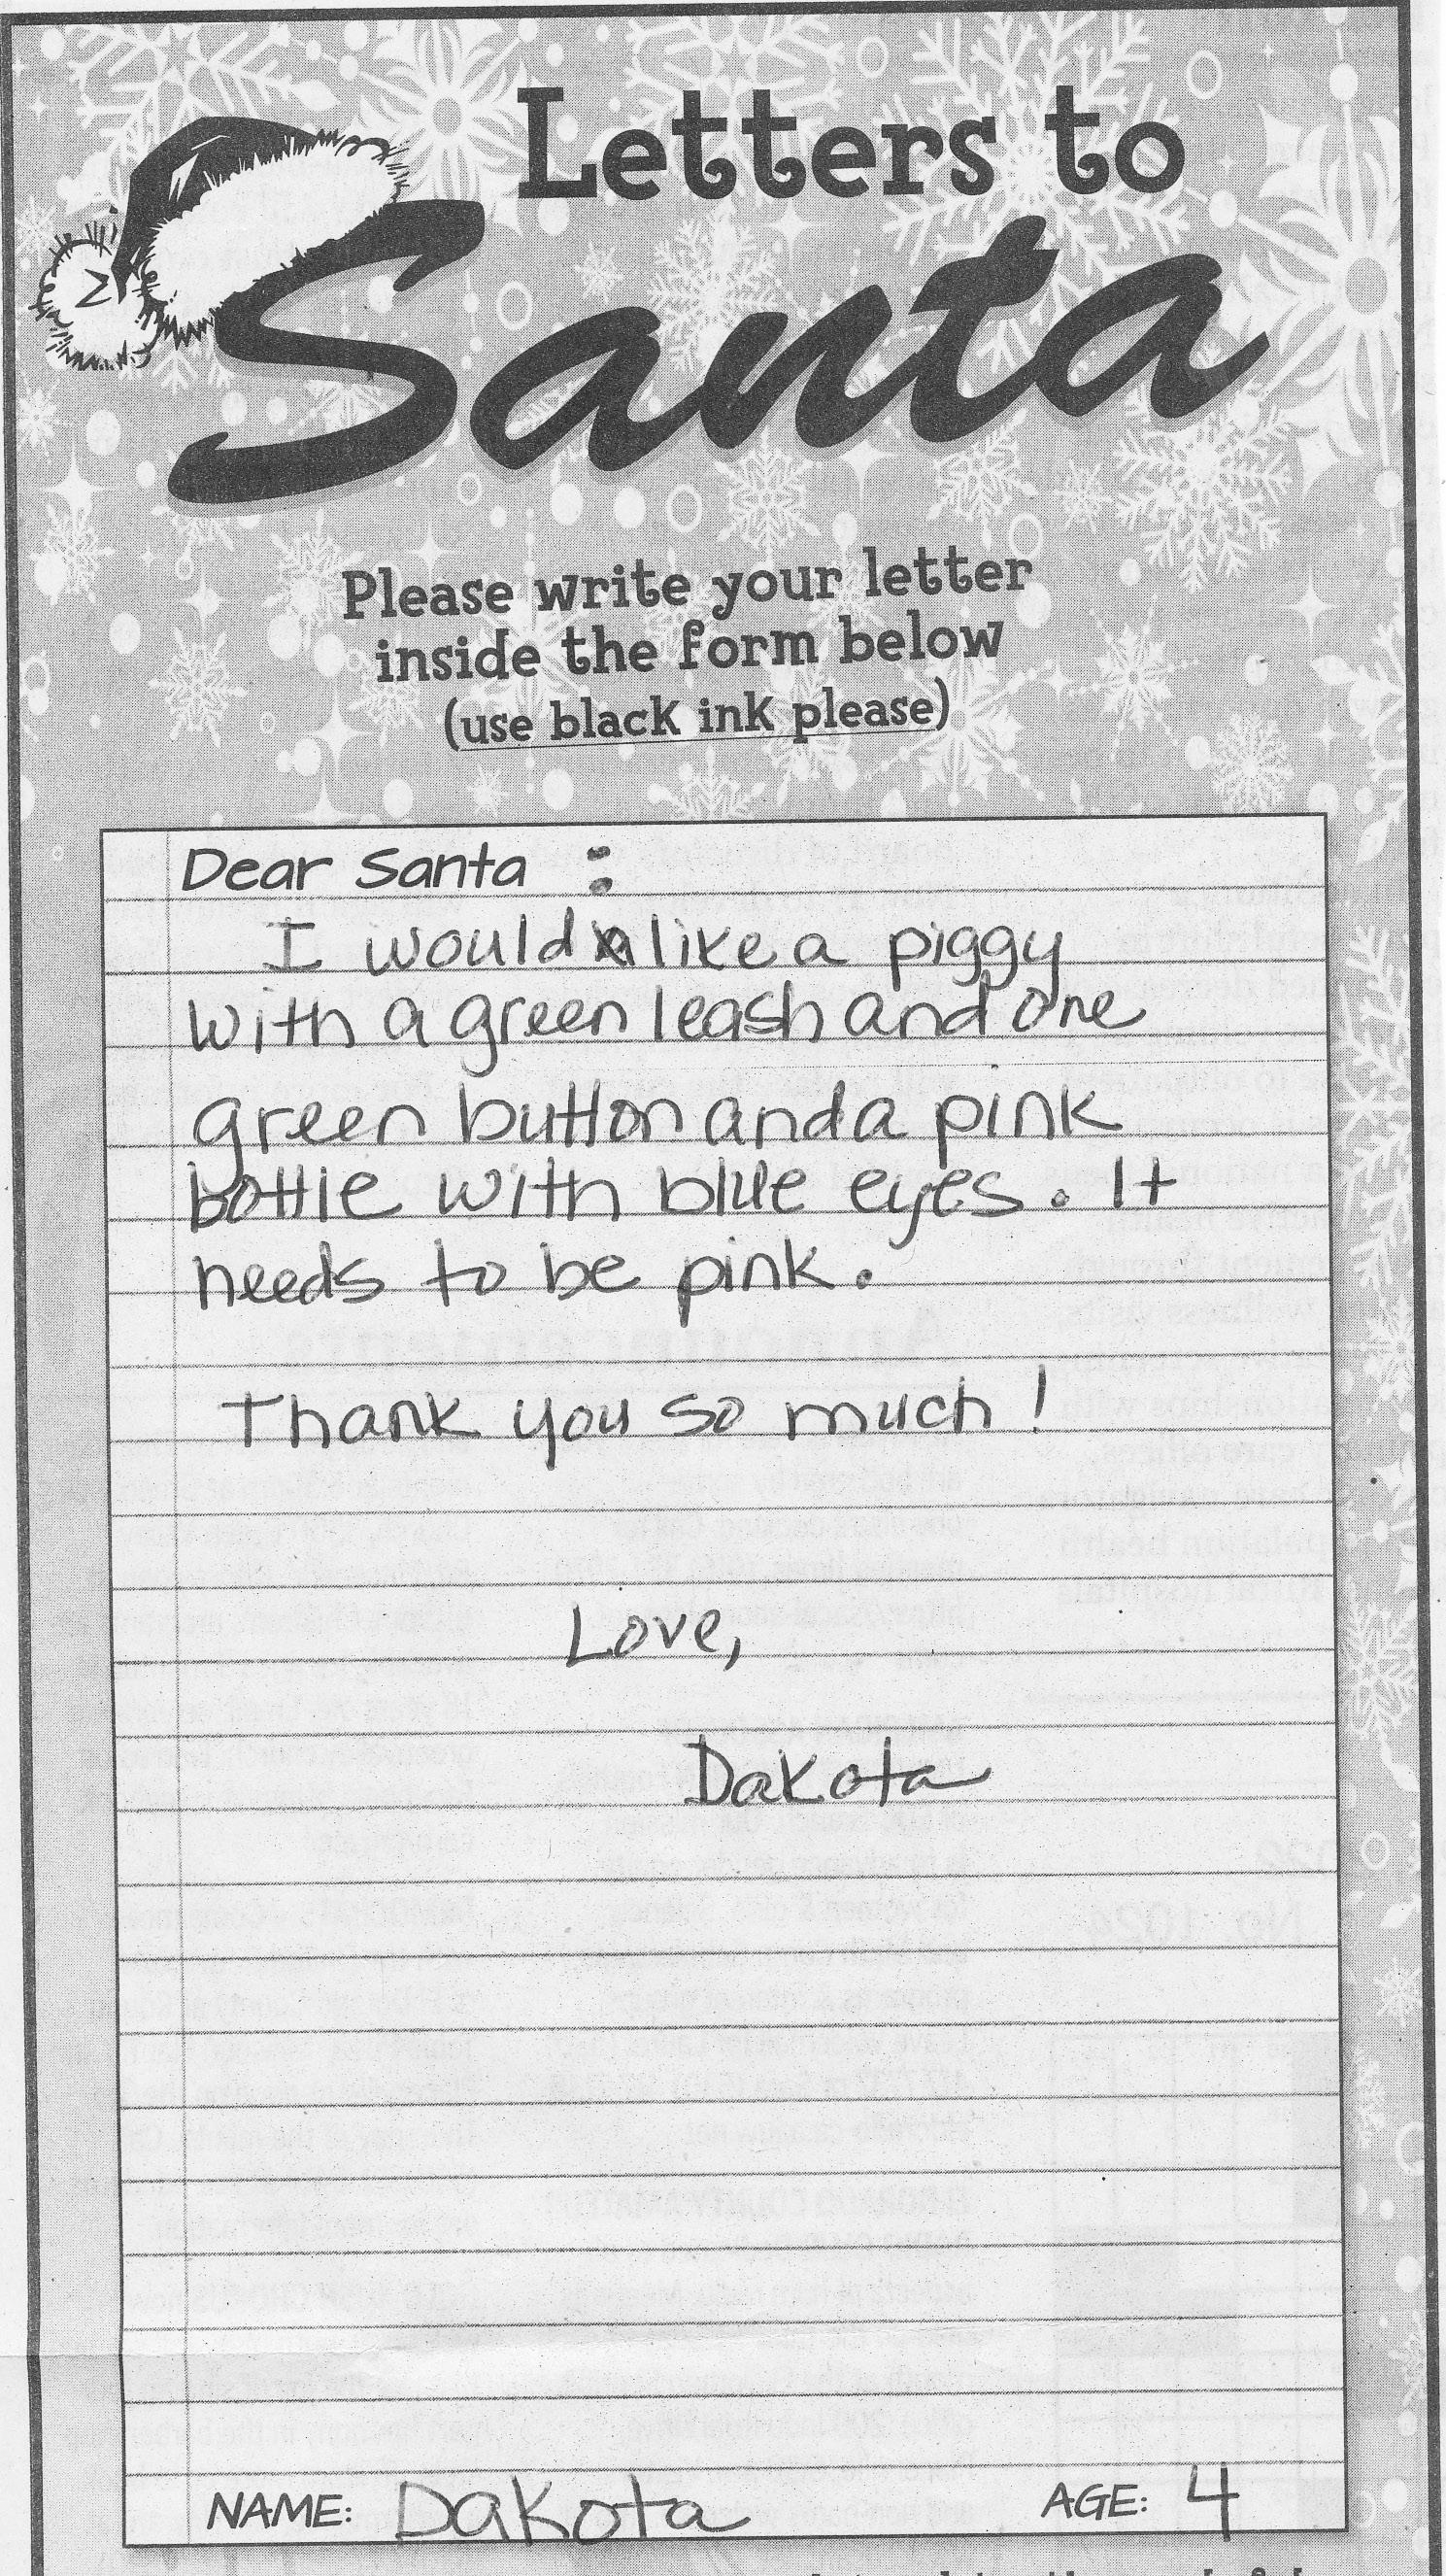 Letters to
Santa
Please write your letter
inside the form below
(use black ink please)
Dear Santa :
I would like a piggy
with a green leash and one
green button and a pink
bottle with blue eyes. It
needs to be pink.
Thank you so much!
Love,
Dakota
NAME: Dakota AGE: 4